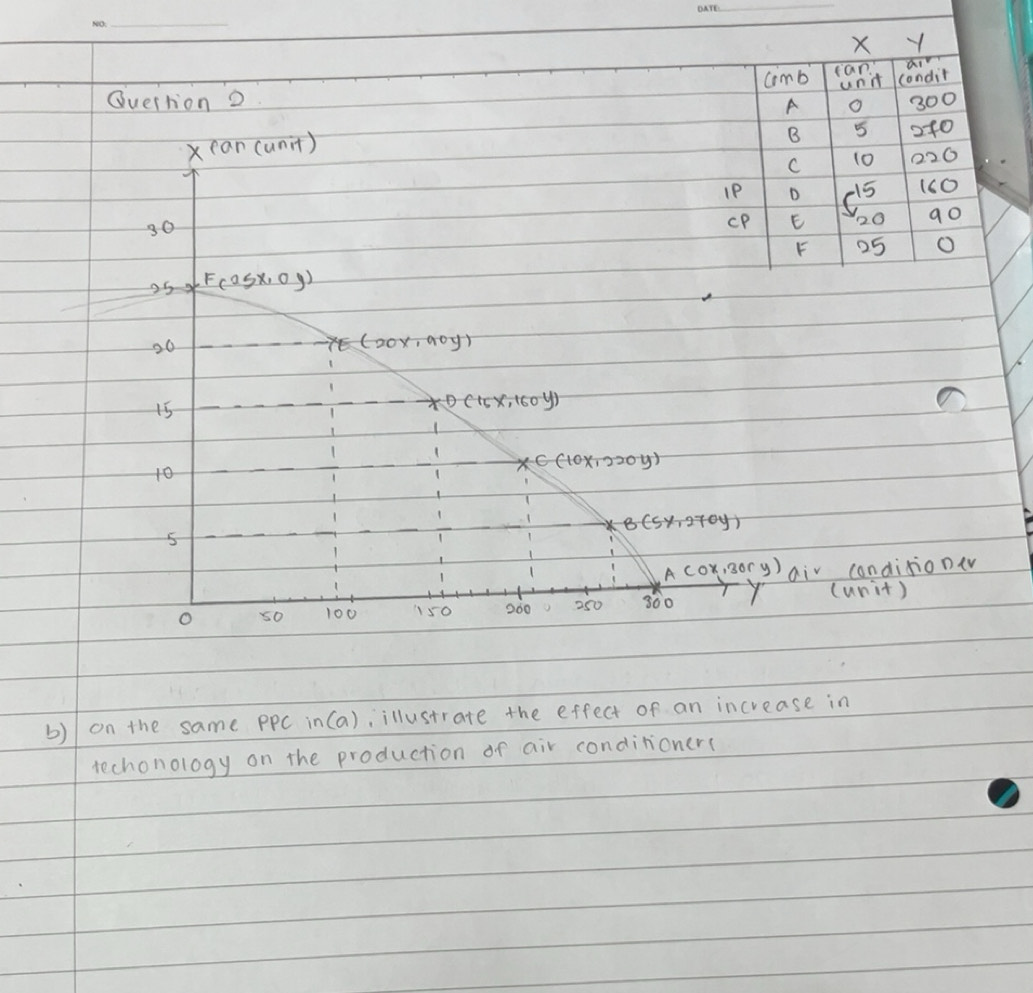 NO:
DATE:
X Y
Comb car unit air condit
Question 2
A 0 300
B 5 270
C 10 220
IP D 15 160
CP E 20 90
F 25 0
X car (unit)
30
25 F(25x, 0y)
20 E (20x, 90y)
15 D (15x, 160y)
10 C (10x, 220y)
5 B (5x, 270y)
A (0x, 300y) air conditioner
(unit)
Y
0 50 100 150 200 250 300
b) on the same PPC in (a), illustrate the effect of an increase in
techonology on the production of air conditioners